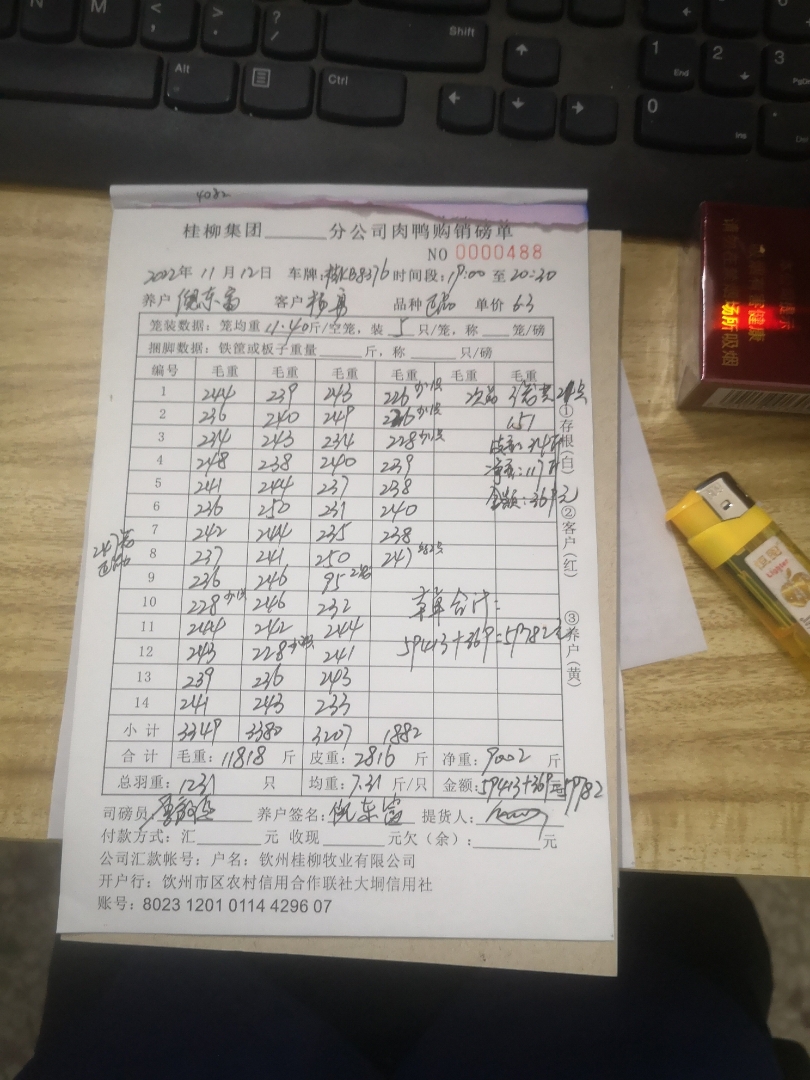 N M < , > . ? / Shift
Alt Ctrl
1 End 2 3
0 Ins
4082
桂柳集团______分公司肉鸭购销磅单
NO 0000488
2022年 11月 12日 车牌: 桂KB8376 时间段: 17:00 至 20:30
养户 倪东富 客户 杨勇 品种 正品 单价 6.3
笼装数据: 笼均重 11.40 斤/空笼, 装 5 只/笼, 称 ____ 笼/磅
捆脚数据: 铁筐或板子重量______斤, 称______只/磅
编号 毛重 毛重 毛重 毛重 毛重 毛重
1 244 239 243 226 少1只 次品
2 236 240 249 226 少1只 151
3 234 243 234 228 少1只 皮重: 34斤
4 248 238 240 239 净重: 117斤
5 241 244 237 238 金额: 369元
6 236 250 231 240
7 242 244 235 238
247笼 正品
8 237 241 250 247
9 236 246 95 2笼
10 228 少1只 246 232 合计:
11 244 242 244 59413+369=59782元
12 243 228 241
13 239 236 243
14 241 243 233
小计 3349 3380 3207 1882
合计 毛重: 11818 斤 皮重: 2816 斤 净重: 9002 斤
总羽重: 1231 只 均重: 7.31 斤/只 金额: 59413+369=59782
司磅员 养户签名: 倪东富 提货人:
付款方式: 汇________元 收现________元欠(余):________元
公司汇款帐号: 户名: 钦州桂柳牧业有限公司
开户行: 钦州市区农村信用合作联社大垌信用社
账号: 8023 1201 0114 4296 07
①存根(白) ②客户(红) ③养户(黄)
健康
场所吸烟
Lighter